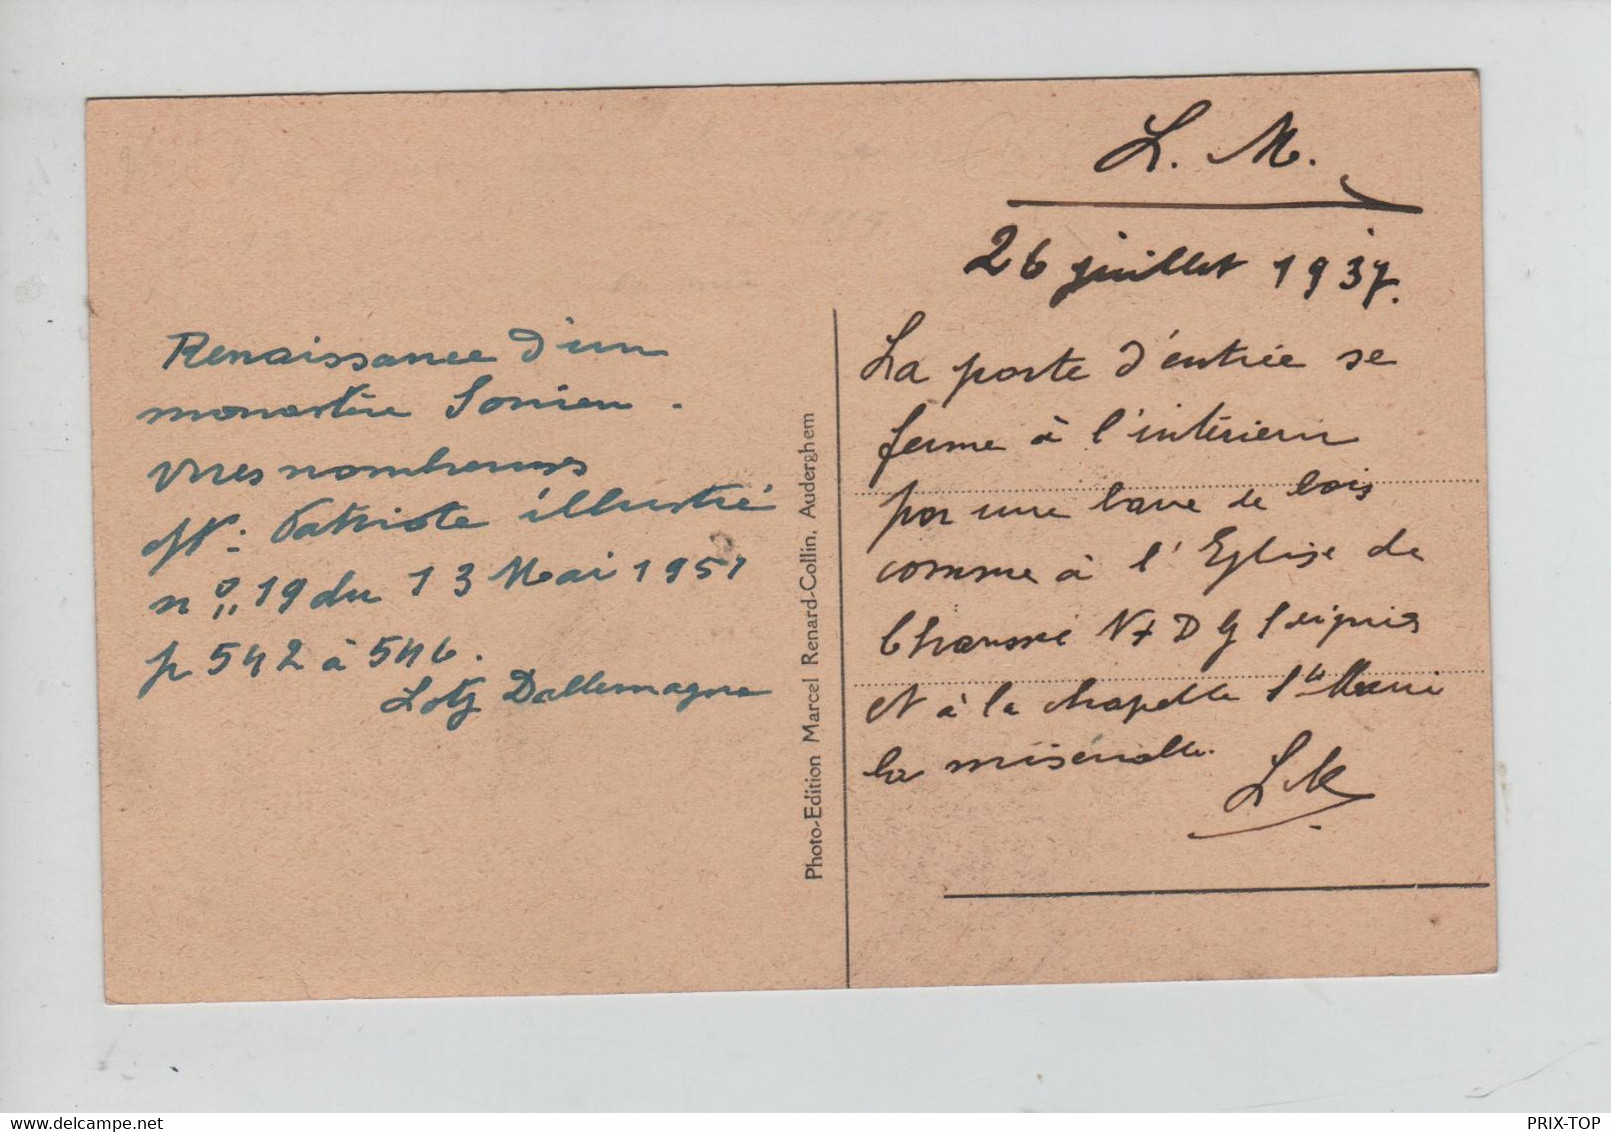 Renaissance d'un
monastère Sonien.
vues nombreuses
cfr: Patriote illustré
n° 19 du 13 Mai 1951
p 542 à 546.
Dallemagne
Photo-Edition Marcel Renard-Collin, Auderghem
L. M.
26 juillet 1937.
La porte d'entrée se
ferme à l'intérieur
par une barre de bois
comme à l'Eglise de
N D
et à la chapelle Ste Marie
la misérable.
PRIX-TOP